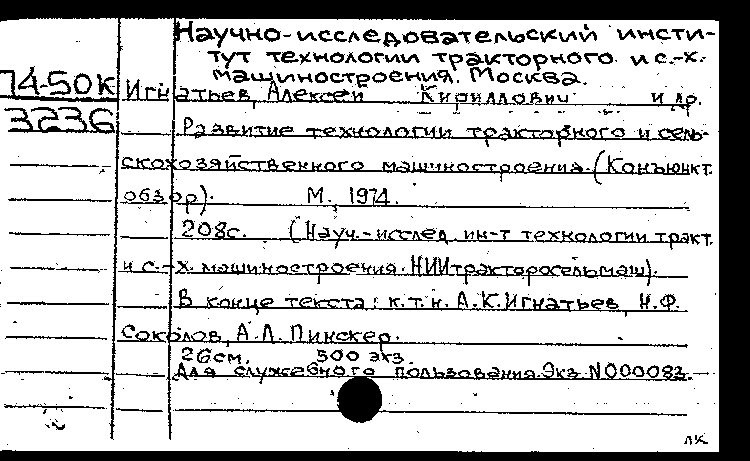 Научно-исследовательский инсти-
тут технологии тракторного и с.-х.
машиностроения. Москва.
74-50к
3236
Игнатьев, Алексей Кириллович и др.
Развитие технологии тракторного и сель-
скохозяйственного машиностроения. (Конъюнкт.
обзор). М., 1974.
208с. (Науч.-исслед. ин-т технологии тракт.
и с.-х. машиностроения. НИИтракторосельмаш).
В конце текста: к.т.н. А.К.Игнатьев, Н.Ф.
Соколов, А.Л. Пинскер.
26см. 500 экз.
Для служебного пользования. Экз. №000082.
лк